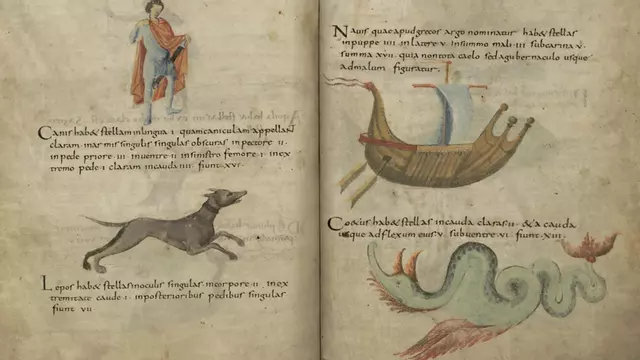 Canis hab& stellam inlingua ·i· quam caniculam appellant
claram· inarmis singulis singulas obscuras inpectore ·ii·
inpede priore ·iii· inventre ·ii· insinistro femore ·i· inex
tremo pede ·i· claram incauda ·iiii· fiunt·xvi·
Lepos hab& stellas inoculis singulas· incorpore ·ii· inex
tremitate caudę ·i· inposterioribus pedibus singulas
fiunt vii
Navis quae apud grecos argo nominatur hab& stellas
inpuppe ·iiii· inlatere ·v· insummo mali ·iii· subcarina ·v·
summa xvii· quia non tota caelo sed agubernaculo usque
admalum figuratur·
Co&us hab& stellas incauda claras ·ii· &a cauda
usque adflexum eius ·v· subventre ·vi· fiunt·xiii·